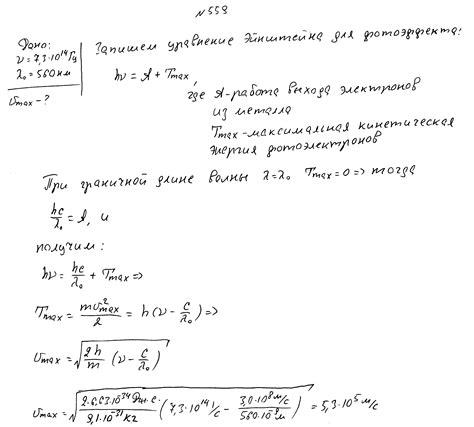 №559
Дано:
ν = 7,3·10¹⁴ Гц
λ₀ = 560 нм
υmax - ?
Запишем уравнение Эйнштейна для фотоэффекта:
hν = A + Tmax,
где A - работа выхода электронов
из металла
Tmax - максимальная кинетическая
энергия фотоэлектронов
При граничной длине волны λ = λ₀ Tmax = 0 => тогда
hc/λ₀ = A, и
получим:
hν = hc/λ₀ + Tmax =>
Tmax = mυ²max/2 = h(ν - c/λ₀) =>
υmax = √(2h/m (ν - c/λ₀))
υmax = √(2·6,63·10³⁴ Дж·с/9,1·10⁻³¹ кг (7,3·10¹⁴ 1/с - 3,0·10⁸ м/с/560·10⁻⁹ м)) = 5,3·10⁵ м/с